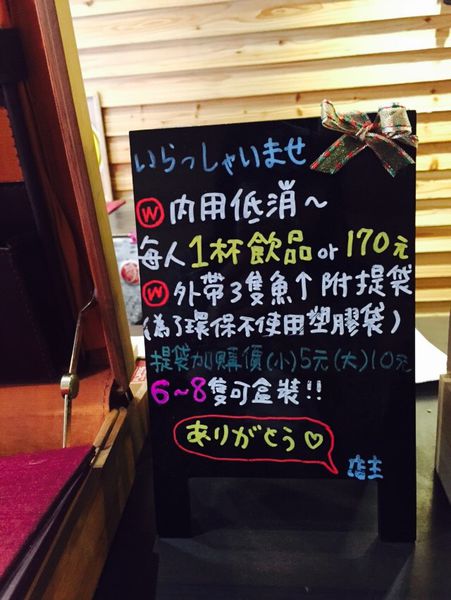 いらっしゃいませ
W 內用低消~
每人1杯飲品or 170元
W 外帶3隻魚↑ 附提袋
(為了環保不使用塑膠袋)
提袋加購價(小)5元(大)10元
6~8隻可盒裝!!
ありがとう♡
店主